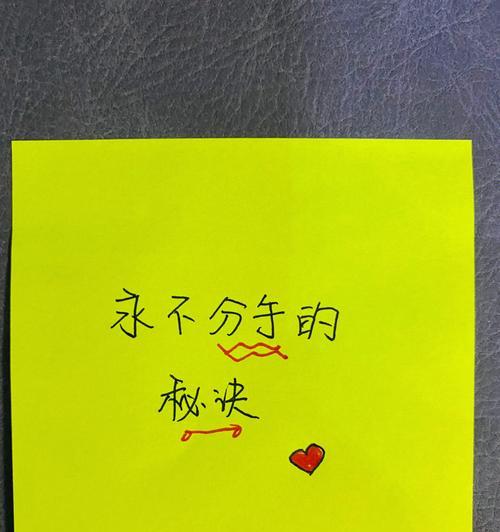 永不分手的
秘诀